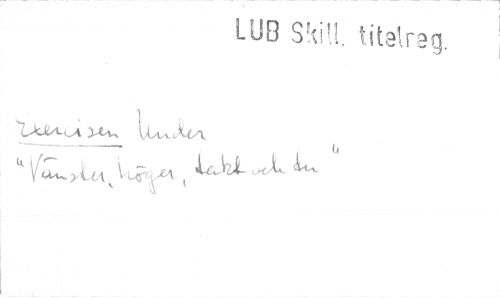 LUB Skill. titelreg.
Exercisen under
"Vänster, höger, takt och tu"